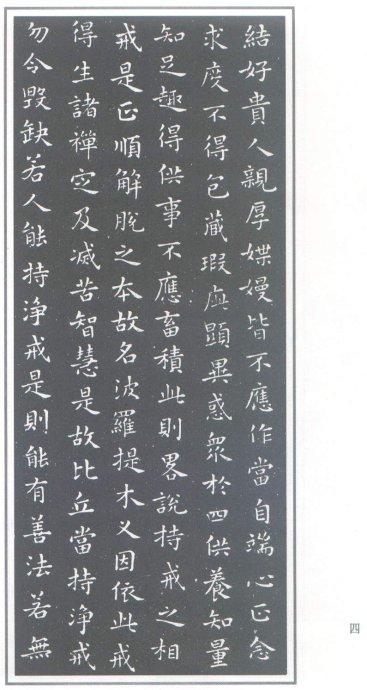 結好貴人親厚媟嫚皆不應作當自端心正念
求度不得包藏瑕疵顯異惑眾於四供養知量
知足趣得供事不應畜積此則畧說持戒之相
戒是正順解脫之本故名波羅提木叉因依此戒
得生諸禪定及滅苦智慧是故比丘當持淨戒
勿令毀缺若人能持淨戒是則能有善法若無
四